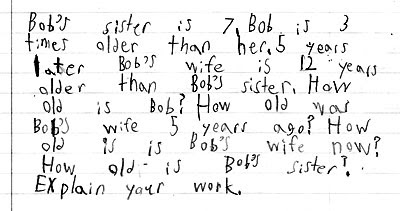 Bob's sister is 7. Bob is 3
times older than her. 5 years
later Bob's wife is 12 years
older than Bob's sister. How
old is Bob? How old was
Bob's wife 5 years ago? How
old is is Bob's wife now?
How old is Bob's sister?
EXplain your work.